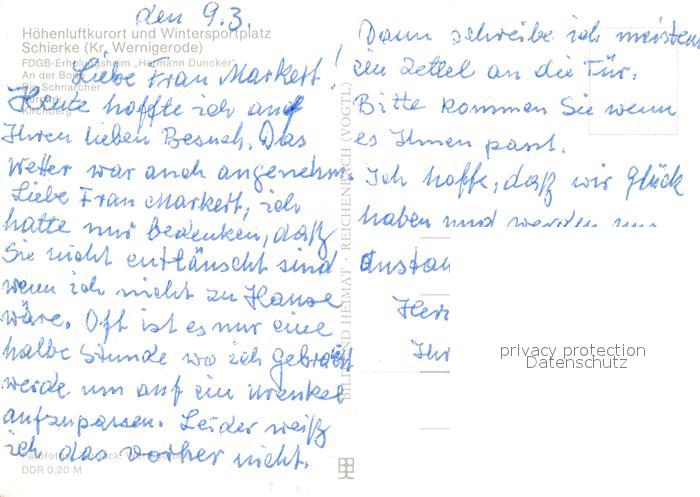 den 9.3.
Höhenluftkurort und Wintersportplatz
Schierke (Kr. Wernigerode)
FDGB-Erholungsheim „Hermann Duncker"
An der Bode
Die Schnarcher
Kurpark
Kirchberg
Liebe Frau Markert!
Heute hoffte ich auf
Ihren lieben Besuch. Das
Wetter war auch angenehm.
Liebe Frau Markert, ich
hatte nur Bedenken, daß
Sie nicht enttäuscht sind
wenn ich nicht zu Hause
wäre. Oft ist es nur eine
halbe Stunde wo ich gebraucht
werde um auf ein Urenkel
aufzupassen. Leider weiß
ich das vorher nicht.
DDR 0,20 M
BILD UND HEIMAT · REICHENBACH (VOGTL)
Dann schreibe ich meistens
ein Zettel an die Tür.
Bitte kommen Sie wenn
es Ihnen passt.
Ich hoffe, daß wir Glück
haben und werden uns
privacy protection
Datenschutz